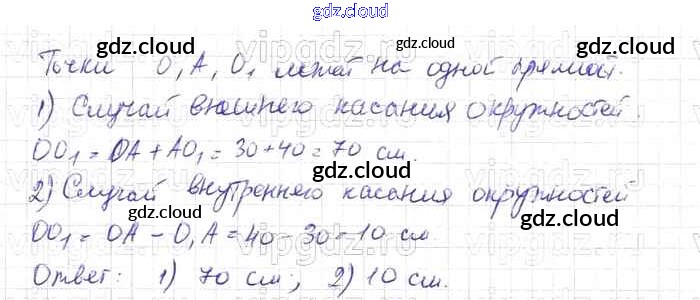 gdz.cloud
gdz.cloud gdz.cloud
Точки O, A, O₁ лежат на одной прямой.
1) Случай внешнего касания окружностей.
gdz.cloud gdz.cloud
OO₁ = OA + AO₁ = 30 + 40 = 70 см.
2) Случай внутреннего касания окружностей
gdz.cloud gdz.cloud
OO₁ = OA - O₁A = 40 - 30 = 10 см.
Ответ: 1) 70 см; 2) 10 см.
gdz.cloud gdz.cloud